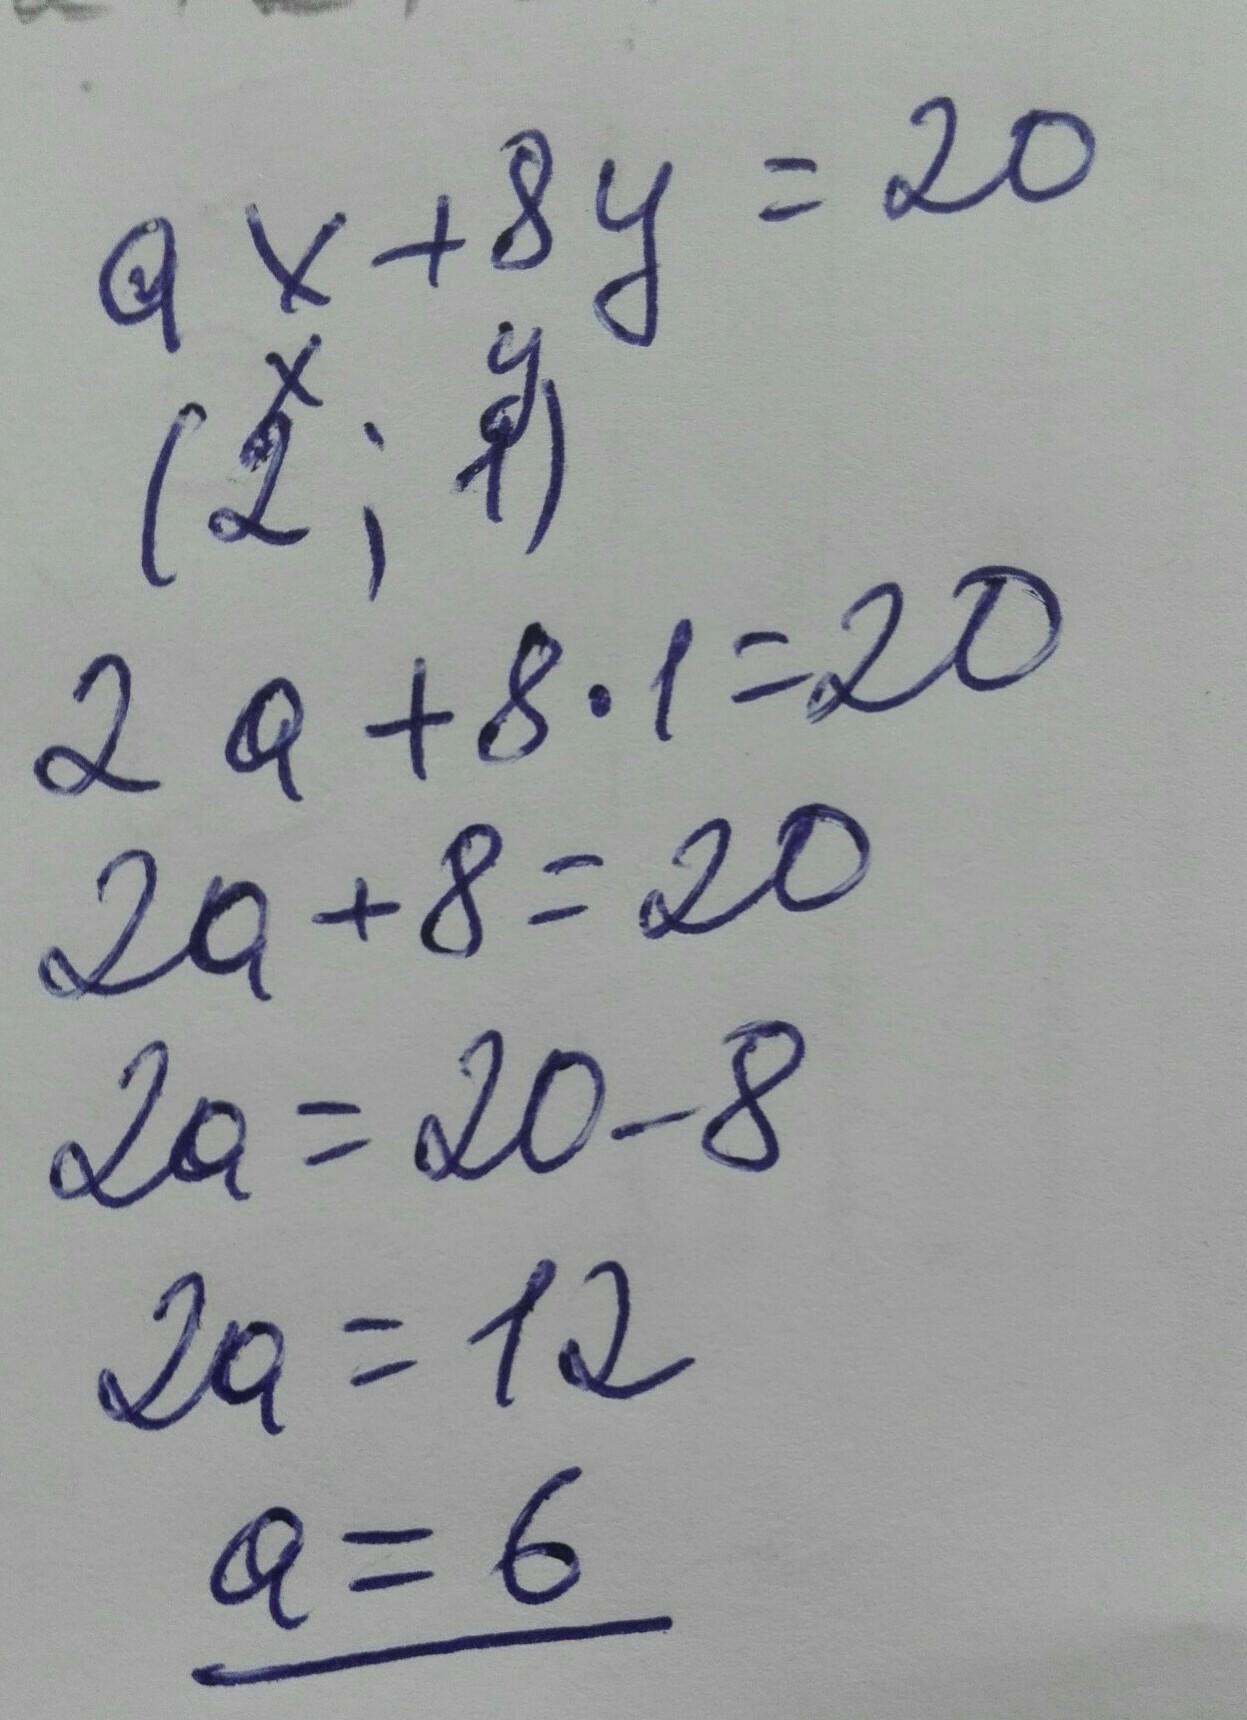 ax + 8y = 20
x y
(2; 1)
2a + 8 · 1 = 20
2a + 8 = 20
2a = 20 - 8
2a = 12
a = 6